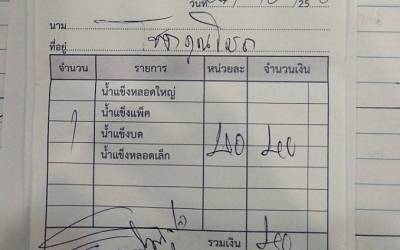 วันที่ 25
นาม
ที่อยู่
จำนวน รายการ หน่วยละ จำนวนเงิน
น้ำแข็งหลอดใหญ่
น้ำแข็งแพ็ค
1 น้ำแข็งบด
น้ำแข็งหลอดเล็ก 40 40
รวมเงิน 40